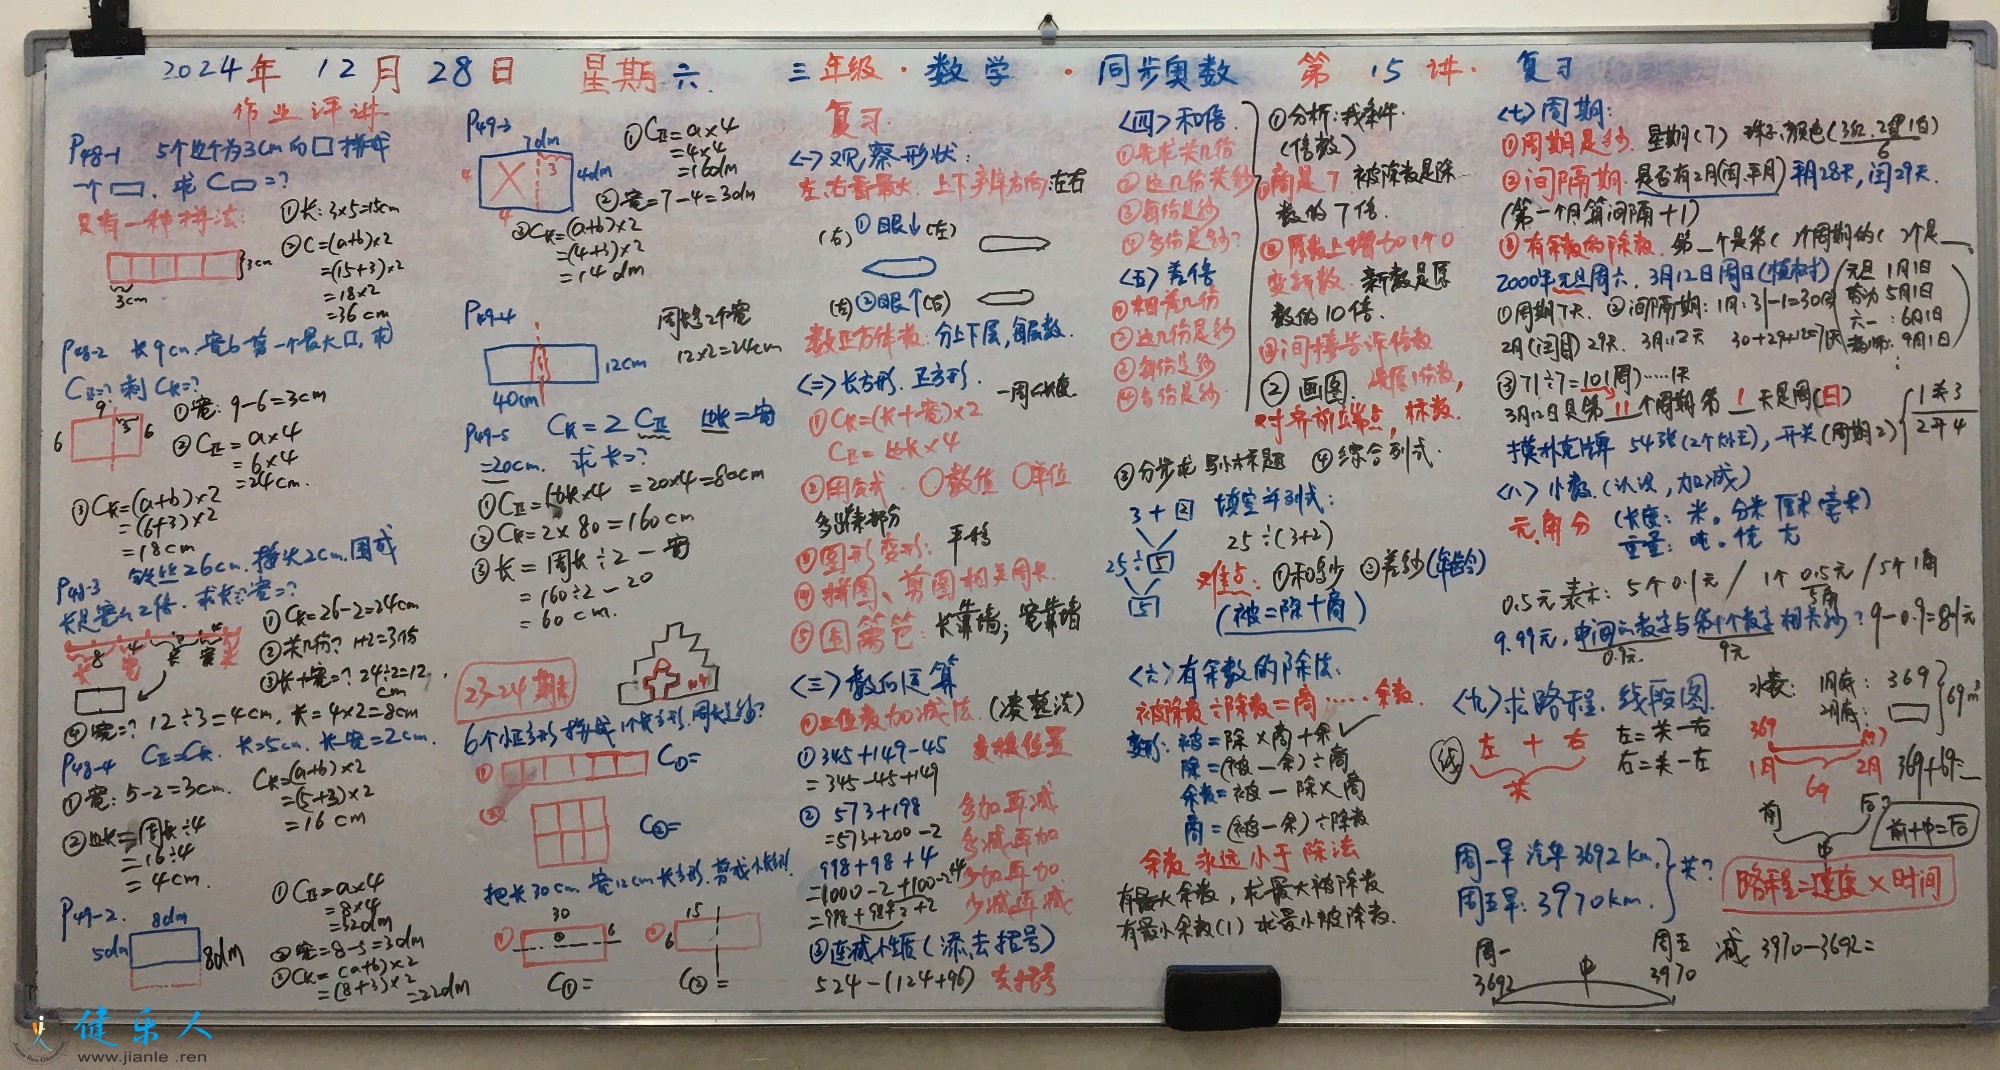 2024年 12月 28日 星期六. 三年级·数学·同步奥数 第15讲· 复习
作业评讲
P48-1 5个边为3cm的□拼成
一个▭. 求C▭=?
只有一种拼法:
①长:3×5=15cm
②C=(a+b)×2
=(15+3)×2
=18×2
=36cm
3cm
3cm
P48-2 长9cm.宽6剪一个最大□,求
C正=?剩C长=?
9
6
3
6
①宽:9-6=3cm
②C正=a×4
=6×4
=24cm.
③C长=(a+b)×2
=(6+3)×2
=18cm
P48-3 铁丝26cm.接头2cm.围成
长是宽的2倍.求长?宽=?
①C长=26-2=24cm
②共几份? 1+2=3份
③长+宽=? 24÷2=12
cm
④宽=? 12÷3=4cm, 长=4×2=8cm
P48-4 C正=C长. 长=5cm. 长-宽=2cm.
①宽:5-2=3cm. C长=(a+b)×2
=(5+3)×2
=16cm
②边长=周长÷4
=16÷4
=4cm.
P49-2.
8dm
5dm
8dm
①C正=a×4
=8×4
=32dm
②宽=8-5=3dm
③C长=(a+b)×2
=(8+3)×2
=22dm
P49-3
7dm
4
3
4dm
4
①C正=a×4
=4×4
=16dm
②宽=7-4=3dm
③C长=(a+b)×2
=(4+3)×2
=14dm
P49-4
周长多2个宽
12×2=24cm
12cm
40cm
P49-5 C长=2C正 边长=宽
=20cm. 求长=?
①C正=边长×4=20×4=80cm
②C长=2×80=160cm
③长=周长÷2-宽
=160÷2-20
=60cm.
23-24期末
6个小正方形拼成1个长方形.周长是多少?
① C①=
② C②=
把长30cm 宽12cm长方形.剪成小长方形
① 30 6
② 15 6
C①= C②=
复习.
<一>观察形状:
左、右看最大. 上下判斗方向,左右
(右)①眼↓(左)
(左)②眼↑(右)
数正方体数:分上下层,每层数.
<二>长方形.正方形. 一周长度.
①C长=(长+宽)×2
C正=边长×4
②用公式. ○数值 ○单位
③图形变形: 平移
④拼图、剪图相关周长.
⑤围篱笆: 长靠墙; 宽靠墙
<三>数的运算
①三位数加减法.(凑整法)
①345+149-45 交换位置
=345-45+149
②573+198 多加再减
=573+200-2 多减再加
998+98+4 少加再加
=1000-2+100-2+4 少减再减
=998+98+2+2
③连减性质(添,去括号)
524-(124+96) 去括号
<四>和倍.
①先求共几份
②这几份共多少
③每份是多少
④多份是多少?
<五>差倍
①相差几份
②这几份是多少
③每份是多少
④多份是多少
①分析:找条件.
(倍数)
①商是7 被除数是除
数的7倍.
②原数上增加1个0
变新数. 新数是原
数的10倍.
③间接告诉倍数
②画图.
对齐前端点,标数.
③分步求 写小标题 ④综合列式.
3+2 填空并列式:
25÷5 25÷(3+2)
5
难点: ①和多少 ②差多少(年龄)
(被=除+商)
<六>有余数的除法:
被除数÷除数=商……余数.
变形: 被=除×商+余✓
除=(被-余)÷商
余数=被-除×商
商=(被-余)÷除数
余数永远小于除法
有最大余数,求最大被除数
有最小余数(1)求最小被除数.
<七>周期:
①周期是多少. 星期(7) 珠子.颜色(3红.2黑1白)
6
②间隔期. 是否有2月(闰.平月) 平28天,闰29天.
(第一个月算间隔+1)
③有余数的除数. 第一个是第( )个周期的( )个是__
2000年元旦周六. 3月12日周日(植树)
元旦 1月1日
劳动 5月1日
六一:6月1日
教师:9月1日
①周期7天. ②间隔期:1月:31-1=30天
2月(闰月)29天. 3月:12天 30+29+12=71天
③71÷7=10(周)……1天
3月12日是第11个周期第1天是周(日)
摸扑克牌 54张(2个小王), 开关(周期2)
1关3
2开4
<八>小数.(认识,加减)
元.角分 (长度: 米。分米 厘米 毫米)
重量: 吨。千克 克
0.5元表示: 5个0.1元 / 1个0.5元 / 5个1角
5角
9.99元,中间的数字与第1个数字相差多少? 9-0.9=8.1元
0.9元 9元
<九>求路程.线段图.
线 左+右 左=共-右
共 右=共-左
水数: 1月底: 369
2月底:
69m³
369
1月 69 2月
369+69=__
前 中 后?
前+中=后
周一早 汽车3692km.
周五早: 3970km.
共?
路程=速度×时间
周一
3692
中
周五
3970
减 3970-3692=
健乐人
www.jianle.ren